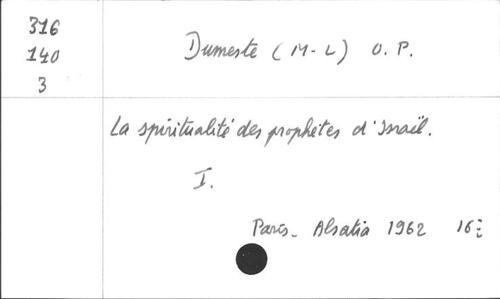 316
140
3
Dumeste (M-L) O.P.
La spiritualité des prophètes d'Israël.
I.
Paris - Alsatia 1962 16